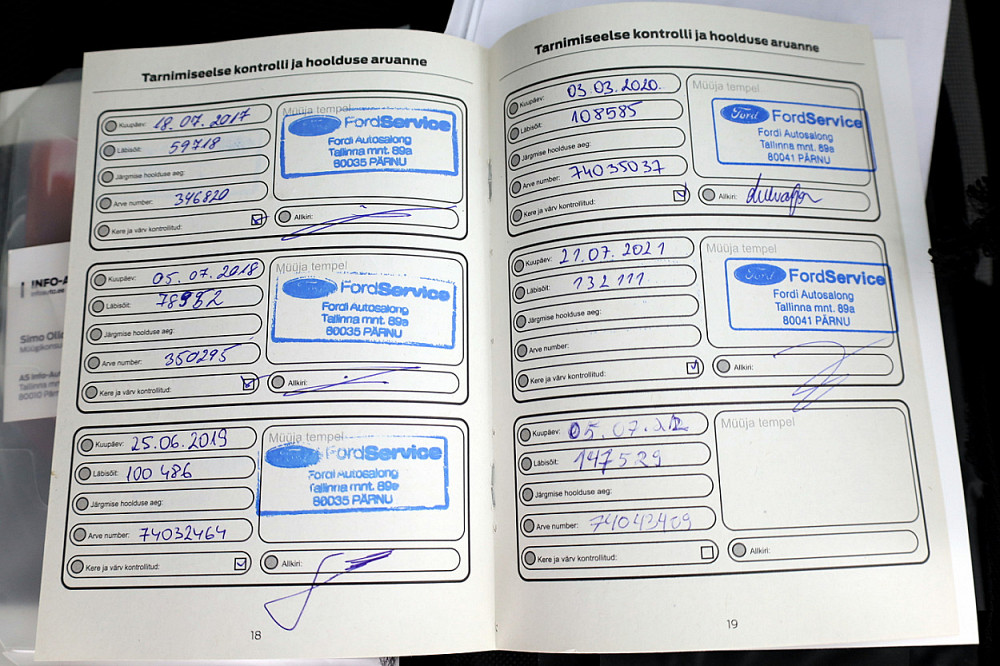 Tarnimiseelse kontrolli ja hoolduse aruanne
Kuupäev: 18.07.2017
Läbisõit: 59718
Järgmise hoolduse aeg:
Arve number: 346820
Kere ja värv kontrollitud:
Müüja tempel
Ford FordService
Fordi Autosalong
Tallinna mnt. 89a
80035 PÄRNU
Allkiri:
Kuupäev: 05.07.2018
Läbisõit: 78982
Järgmise hoolduse aeg:
Arve number: 350295
Kere ja värv kontrollitud:
Müüja tempel
Ford FordService
Fordi Autosalong
Tallinna mnt. 89a
80035 PÄRNU
Allkiri:
Kuupäev: 25.06.2019
Läbisõit: 100 486
Järgmise hoolduse aeg:
Arve number: 74032464
Kere ja värv kontrollitud:
Müüja tempel
Ford FordService
Fordi Autosalong
Tallinna mnt. 89a
80035 PÄRNU
Allkiri:
18
Tarnimiseelse kontrolli ja hoolduse aruanne
Kuupäev: 03.03.2020.
Läbisõit: 108585
Järgmise hoolduse aeg:
Arve number: 74035037
Kere ja värv kontrollitud:
Müüja tempel
Ford FordService
Fordi Autosalong
Tallinna mnt. 89a
80041 PÄRNU
Allkiri:
Kuupäev: 21.07.2021
Läbisõit: 132111
Järgmise hoolduse aeg:
Arve number:
Kere ja värv kontrollitud:
Müüja tempel
Ford FordService
Fordi Autosalong
Tallinna mnt. 89a
80041 PÄRNU
Allkiri:
Kuupäev: 05.07.
Läbisõit: 147529
Järgmise hoolduse aeg:
Arve number: 74042409
Kere ja värv kontrollitud:
Müüja tempel
Allkiri:
19
INFO-A
Simo
AS Info-Au
Tallinna m
80010 Pärn